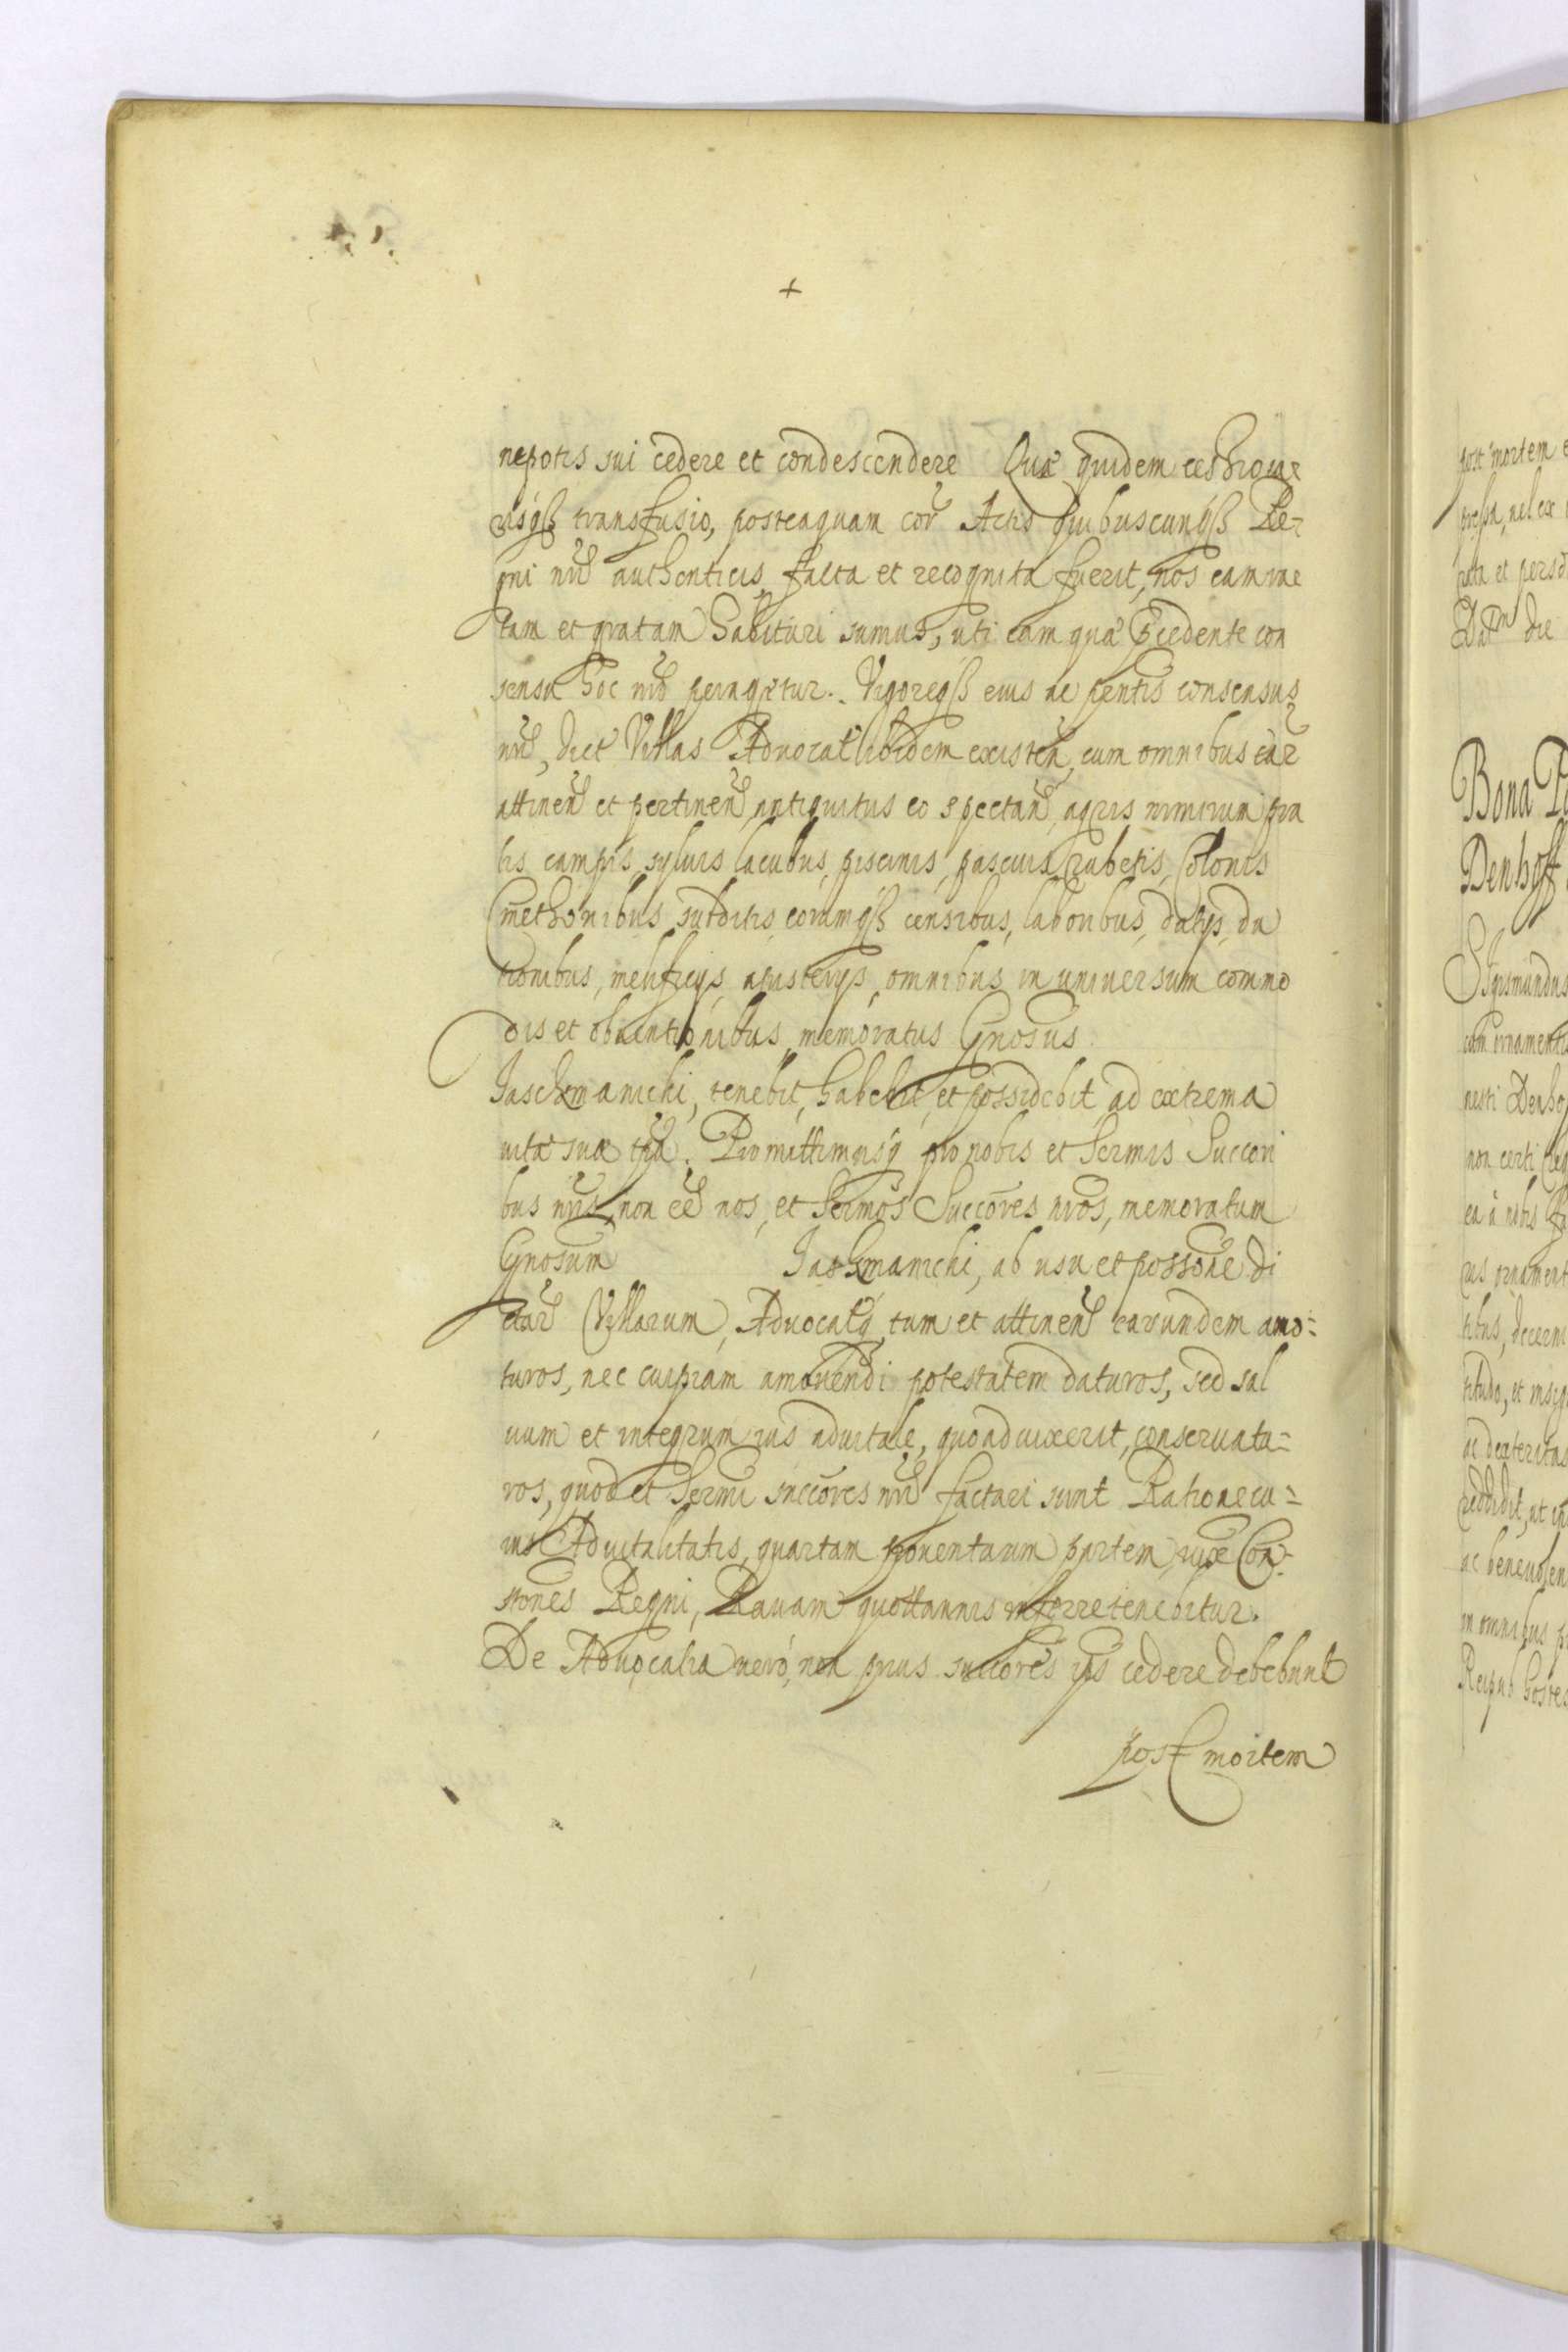 +
nepotis sui cedere et condescendere Quæ quidem cessio iu-
risqß transfusio, posteaquam cor Actis quibuscunqß Re-
gni nri authenticis facta et recognita fuerit, nos eam ra
tam et gratam habituri sumus, uti eam quæ præcedente con
sensu hoc nro peragetur. Vigoreqß eius ac pentis consensus
nri, dict Villas Advocat ibidem existen, cum omnibus ear
attinen et pertinen antiquitus eo spectan, agris nimirum pra
tis, campis, sylvis lacubus, piscinis, pascuis, rubetis, Colonis
Cmethonibus subditis, eorumqß censibus, laboribus, datijs, da
tionibus, mellificijs, austerijs, omnibus in universum commo
dis et obventionibus, memoratus Gnosus
Jaschmanichi, tenebit, habebit, et possidebit ad extrema
vitæ suæ tpa. Promittimusq pro nobis et Sermis Succori
bus nris, non ee nos, et Sermos Succores nros, memoratum
Gnosum Jaschmanichi, ab usu et possone di
ctar Villarum, Advocatq tum et attinen earundem amo-
turos, nec cuipiam amovendi potestatem daturos, sed sal
vum et integrum ius advitale, quoad vixerit, conservatu-
ros, quod et Sermi succores nri facturi sunt Ratione cu-
ius Advitalitatis, quartam proventuum partem, iuxe Con-
stones Regni, Ravam quottannis inferre tenebitur.
De Advocatia vero, non prius succores ips cedere debebunt
post mortem
post mortem
Bona
Denhoff
Sigismundus
nesti Denho
non certi
ea a nobis
ac dexteritas
ac benevolen
in omnibus
Reipub hostes